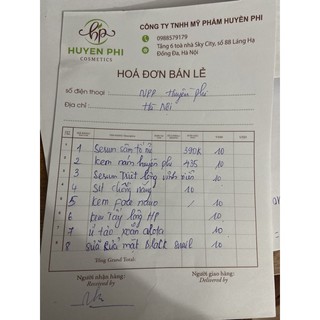 HUYỀN PHI
COSMETICS
CÔNG TY TNHH MỸ PHẨM HUYỀN PHI
0988579179
Tầng 6 toà nhà Sky City, số 88 Láng Hạ
Đống Đa, Hà Nội
HOÁ ĐƠN BÁN LẺ
số điện thoại: NPP Huyền phi
Địa chỉ: Hà Nội
1 Serum sâm tố nữ 390k 10
2 kem nám huyền phi 435 10
3 Serum Triệt lông vĩnh viễn 10
4 Sịt chống nắng 10
5 kem Face nano / 10
6 kem Tẩy lông HP 10
7 ủ tảo xoắn 10
8 Sữa Rửa mặt 10
Tổng Grand Total:
Người nhận hàng:
Received by
Người giao hàng:
Delivered by